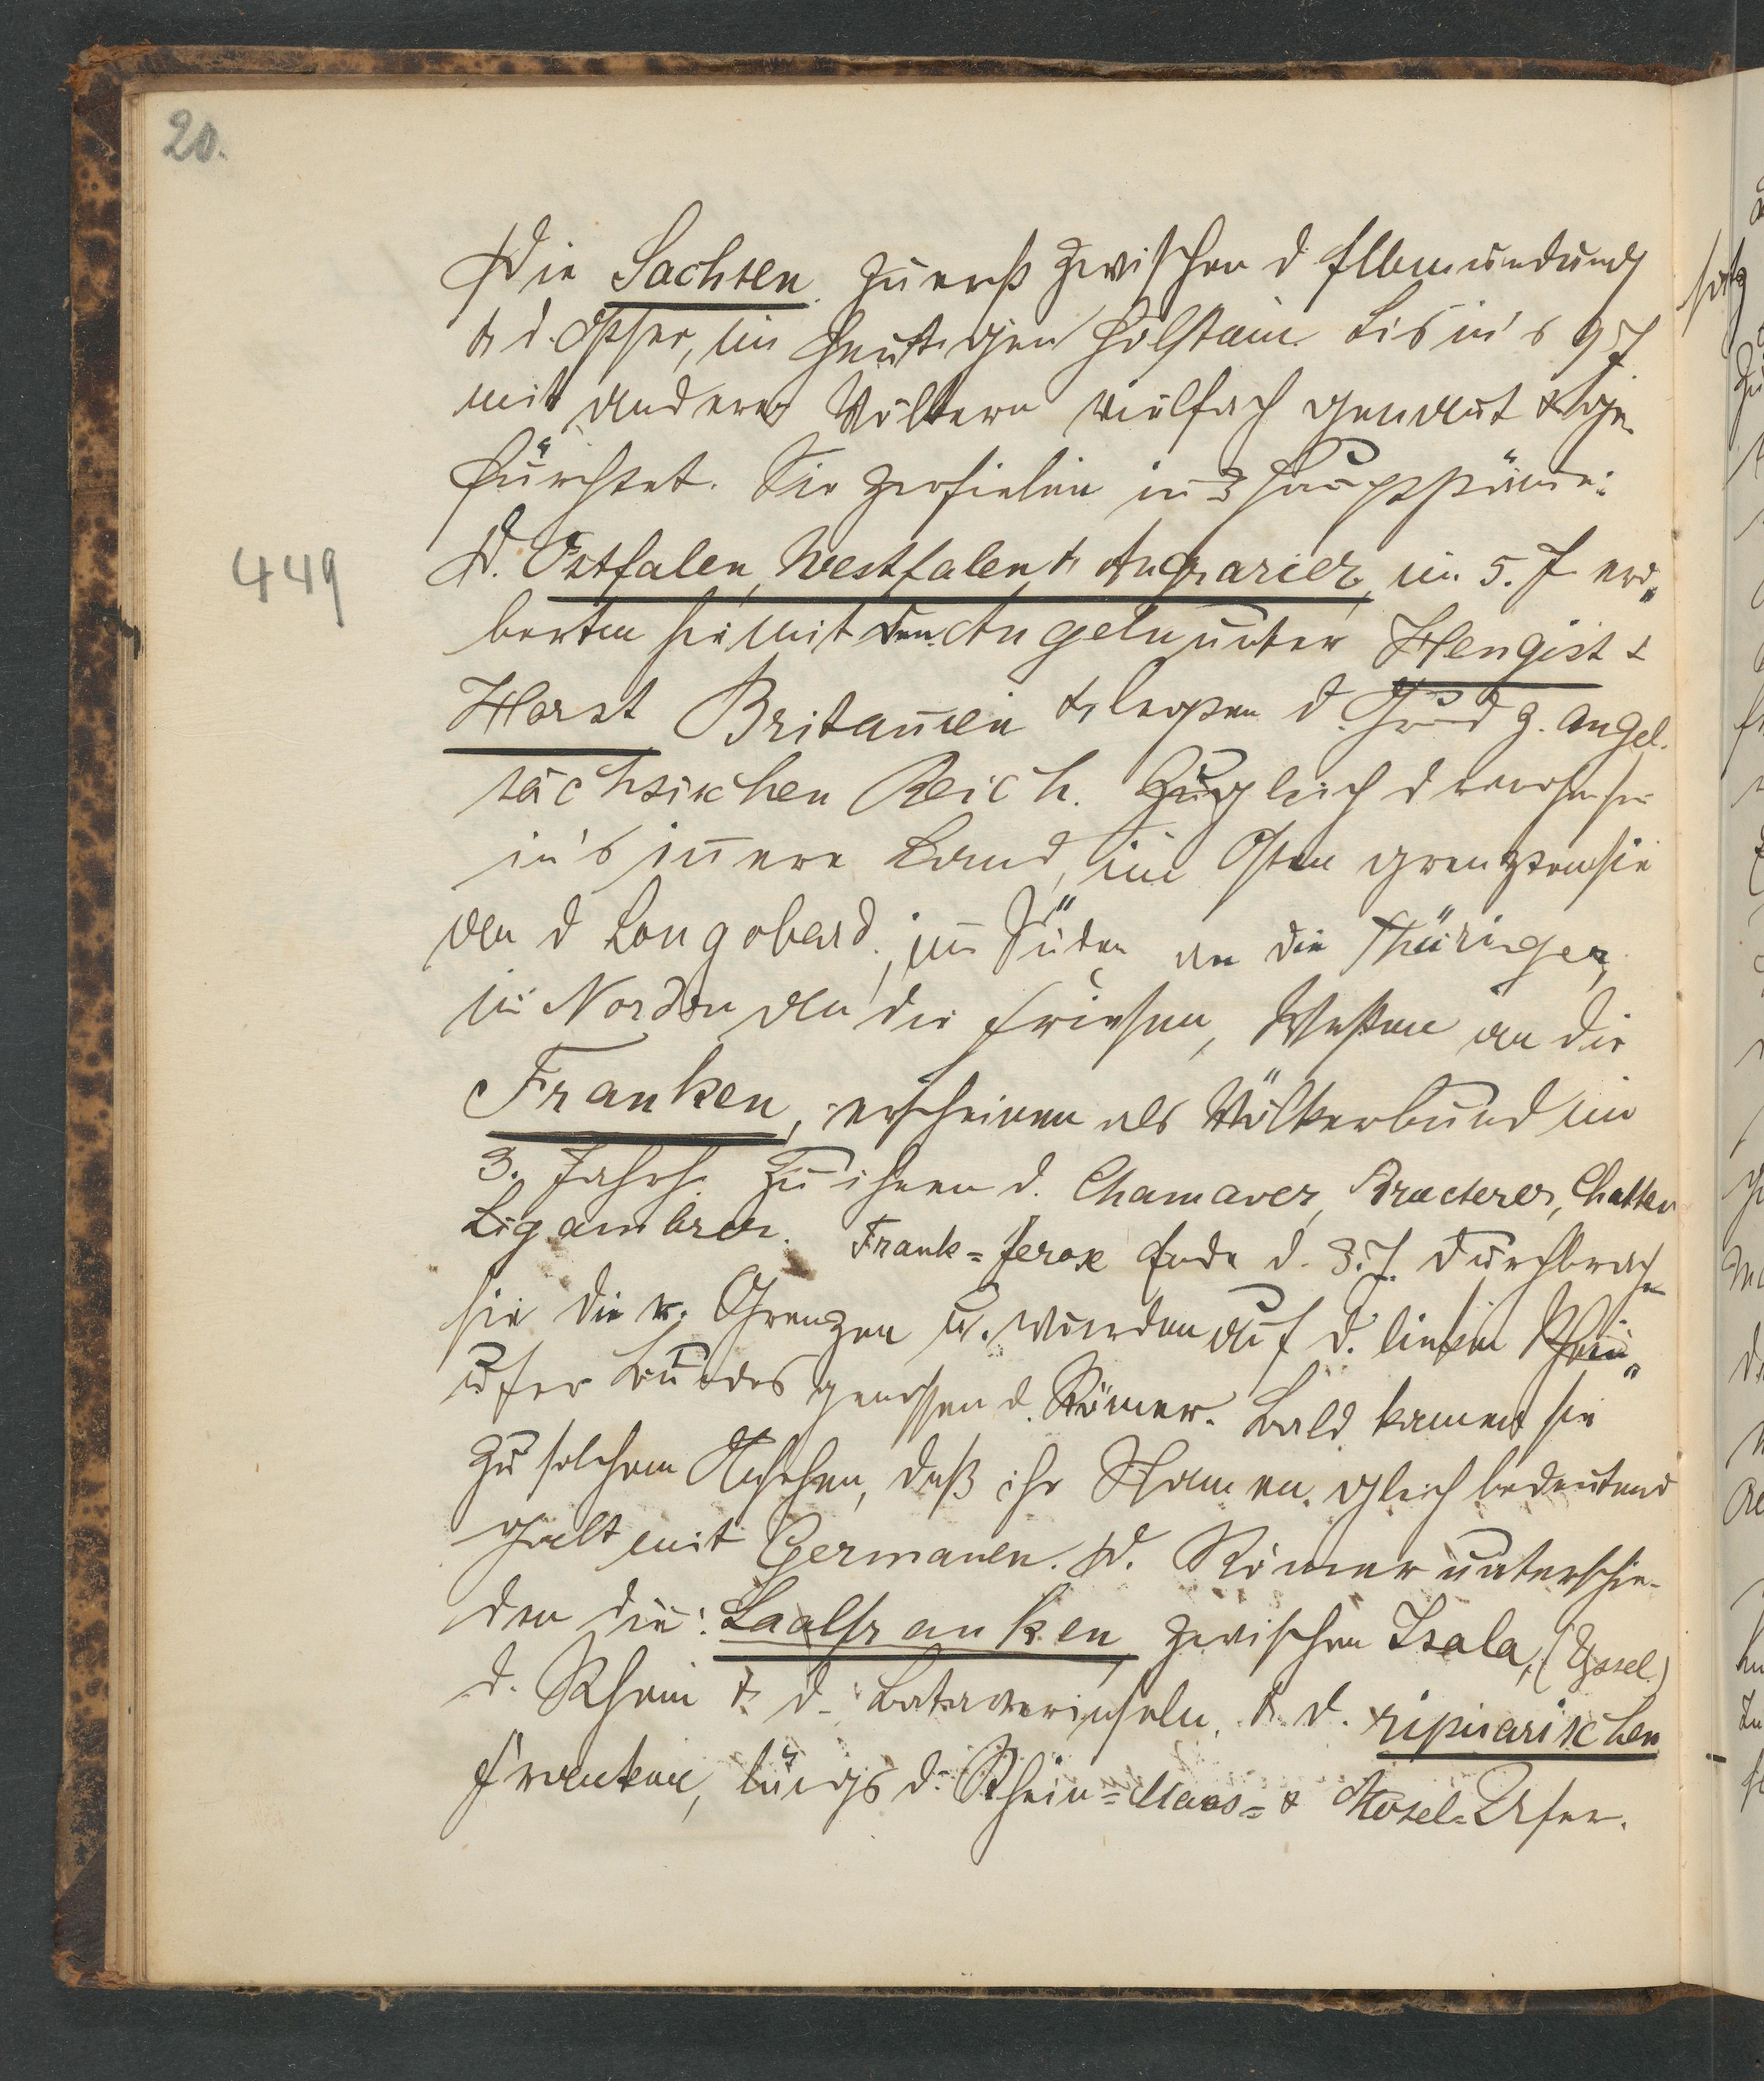 20.
Die Sachsen zuerst zwischen d Elbmündung
& d. Ostsee, im heutigen Holstein. Bis in's 9 J
mit andern Völkern vielfach genant & ge-
fürchtet. Sie zerfielen in 3 Hauptstäme:
449
D. Ostfalen, Westfalen & Angrarier, im 5. J erd„
berten sie mit den Angeln unter Hengist &
Horst Britanien & legten d. Grund z. angel.
sächsischen Reich. Zugleich d
in's inere Land, im Osten grenzten sie
an d Longobard., im Süden an die Thüringer,
im Norden an die Friesen, Westen an die
Franken, erscheinen als Völkerbund im
3. Jahrh. Zu ihnen d. Chamaver, Bructerer, Chatten
Sigambrer. Frank=ferox Ende d. 3. J. durchbrachen
sie die r. Grenzen u. wurden auf d. linken Rhein„
ufer Bundesgenossen d. Römer. Bald kamen sie
zu solchem Ansehen, daß ihr Namen gleichbedeutend
galt mit Germanen. D. Römer unterschie-
den die: Saalfranken zwischen Isala, (Yssel)
d. Rhein & d. Bataverinseln, & d. ripuarischen
Franken, längs d. Rhein=Maas=& Mosel=Ufer.